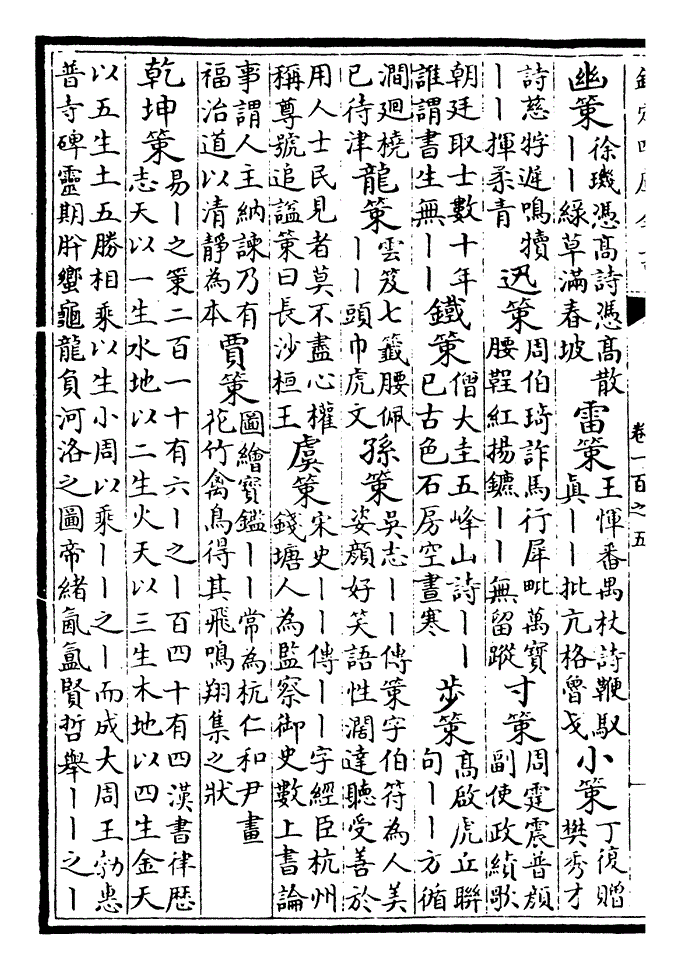 卷一百之五
幽策徐璣憑髙詩憑髙散丨丨緑草滿春坡雷策王惲番禺杖詩鞭馭真丨丨批亢格曾戈小策丁復贈樊秀才
詩慈牸遲鳴犢丨丨揮柔青迅策周伯琦詐馬行犀毗萬寳腰鞓紅揚鑣丨丨無留蹤寸策周霆震普顔副使政績歌
朝廷取士數十年誰謂書生無丨丨鐵策僧大圭五峰山詩丨丨已古色石房空晝寒步策髙啟虎丘聯句丨丨方循
澗廻橈已待津龍策雲笈七籖腰佩丨丨頭巾虎文孫策吳志丨丨傳策字伯符為人美姿顔好笑語性濶達聽受善於
用人士民見者莫不盡心權稱尊號追諡策曰長沙桓王虞策宋史丨丨傳丨丨字經臣杭州錢塘人為監察御史數上書論
事謂人主納諫乃有福治道以清靜為本賈策圖繪寳鑑丨丨常為杭仁和尹畫花竹禽鳥得其飛鳴翔集之狀
乾坤策易丨之策二百一十有六丨之丨百四十有四漢書律厯志天以一生水地以二生火天以三生木地以四生金天
以五生土五勝相乘以生小周以乘丨丨之丨而成大周王勃恵普寺碑靈期肸蠁龜龍負河洛之圖帝緒氤氲賢哲舉丨丨之丨